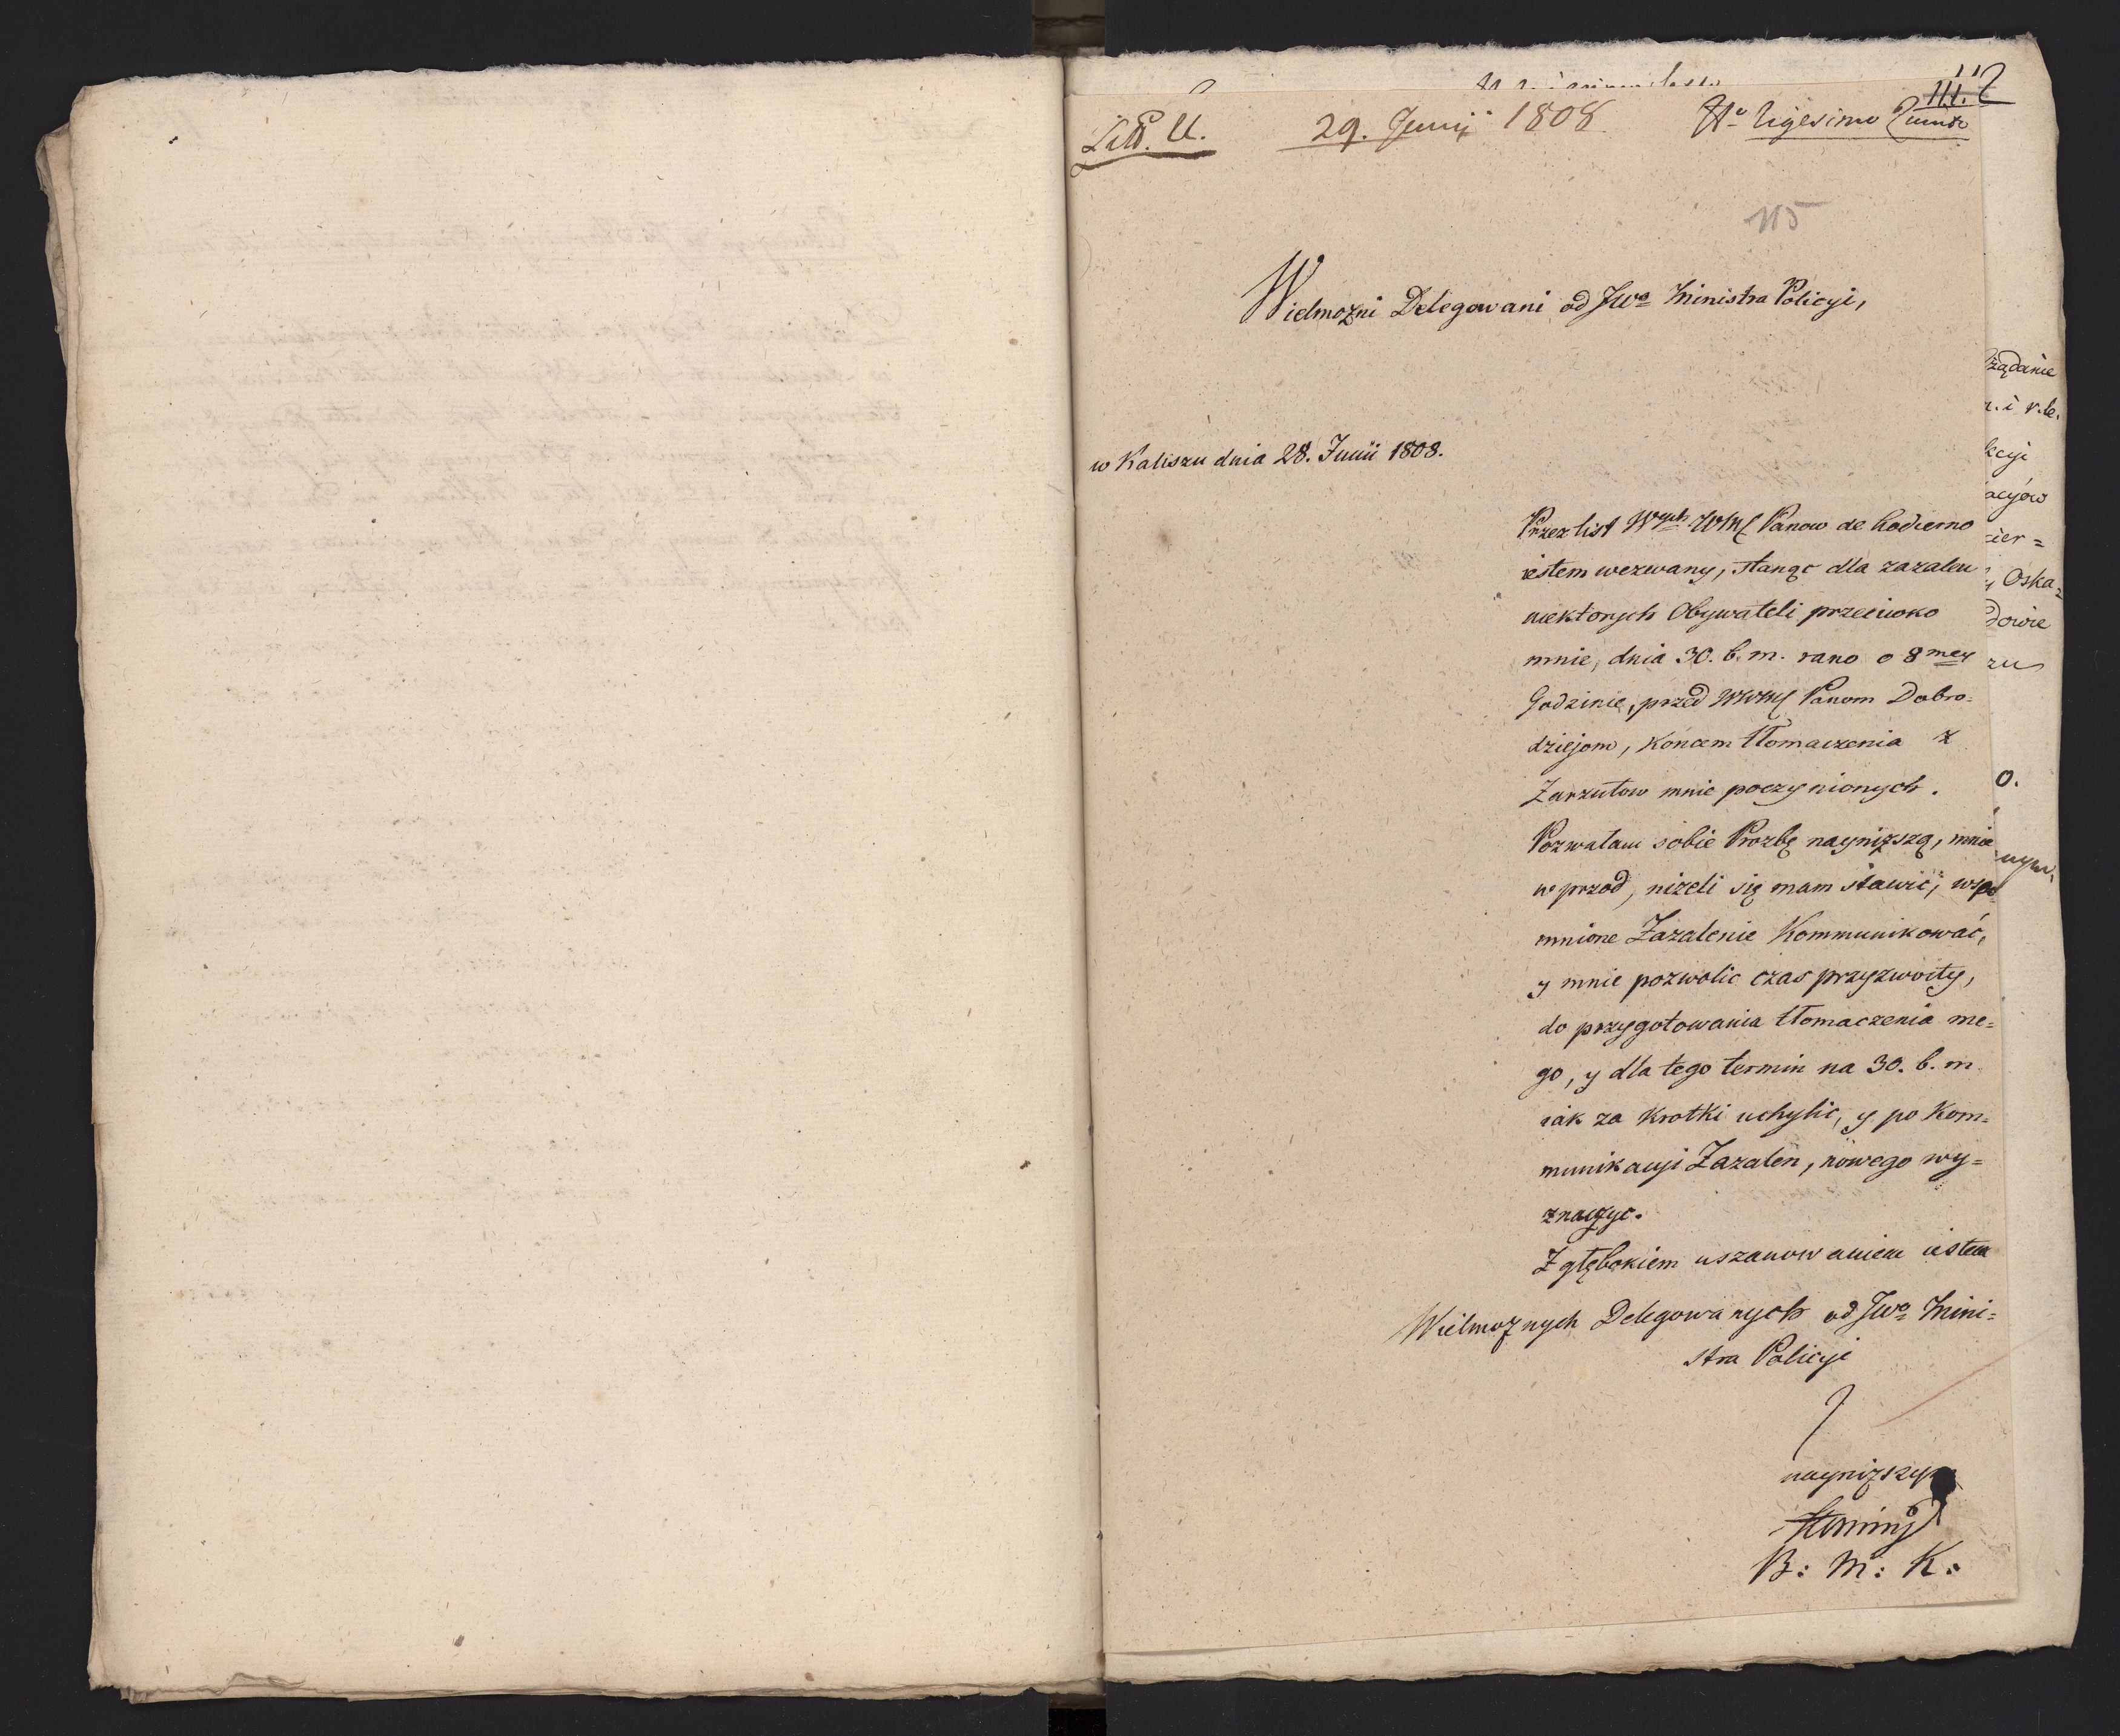 112
111.
Litt. U. 29. Junij 1808 No Vigesimo Quinto
115
Wielmożni Delegowani od JWo Ministra Policyi,
w Kaliszu dnia 28. Junii 1808.
Przez list Wych WM Panow de hodierno
iestem wezwany, stanąc dla zazalen
niektorych Obywateli przeciwko
mnie, dnia 30. b. m. rano o 8mey
Godzinie, przed WWM Panom Dobro=
dziejom, Koncem tłomaczenia z
Zarzutow mnie poczynionych.
Pozwalam sobie Prozbę nayniższą, mnie
w przod, nizeli się mam stawić, wspo
mnione Zazalenie Kommunikować,
y mnie pozwolic czas przyzwoity,
do przygotowania tłomaczenia me=
go, y dla tego termin na 30. b. m.
iak za krotki uchylic, y po Kom=
munikacyi Zazalen, nowego wy=
znaczyc.
Z głębokiem uszanowaniem iestem
Wielmożnych Delegowanych od JWo Mini=
stra Policyi
nayniższym
B: M: K:
żądanie
r. i r. b.
kcyi
acyów
cier=
Oska=
dowie
zu
o.